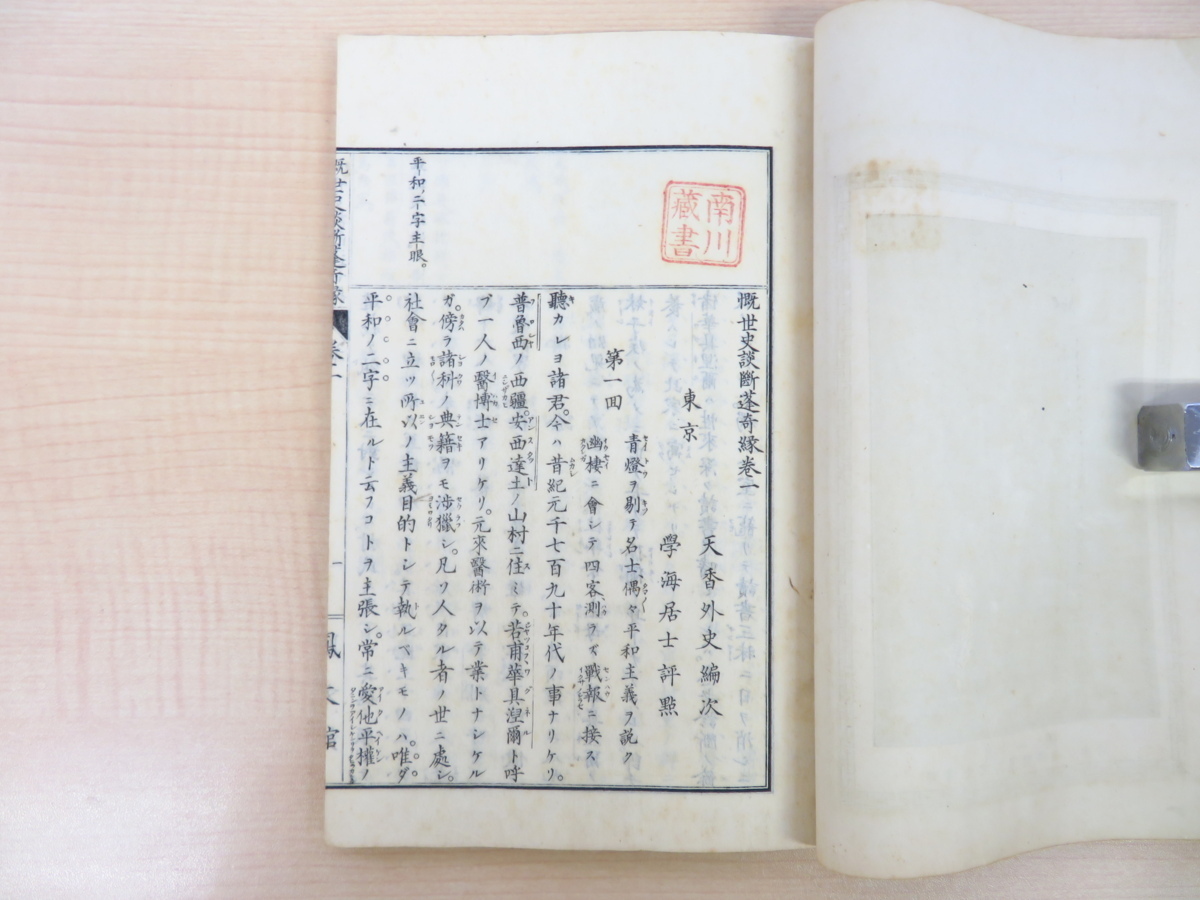 慨世史談斷蓬奇緣卷一
東京
天香外史編次
學海居士評點
第一回
青燈ヲ剔テ名士偶々平和主義ヲ說ク
幽棲ニ會シテ四客測ラズ戰報ニ接ス
聽カレヨ諸君。今ハ昔紀元千七百九十年代ノ事ナリケリ。
普魯西ノ西疆。安西達土ノ山村ニ住ミテ。苦甫華具涅爾ト呼
ブ一人ノ醫博士アリケリ。元來醫術ヲ以テ業トナシケル
ガ。傍ラ諸科ノ典籍ヲモ涉獵シ。凡ソ人タル者ノ世ニ處シ。
社會ニ立ツ所以ノ主義目的トシテ執ルベキモノハ。唯ダ
平和ノ二字ニ在ルト云フコトヲ主張シ。常ニ愛他平權ノ
平和ノ二字主眼。
南川
藏書